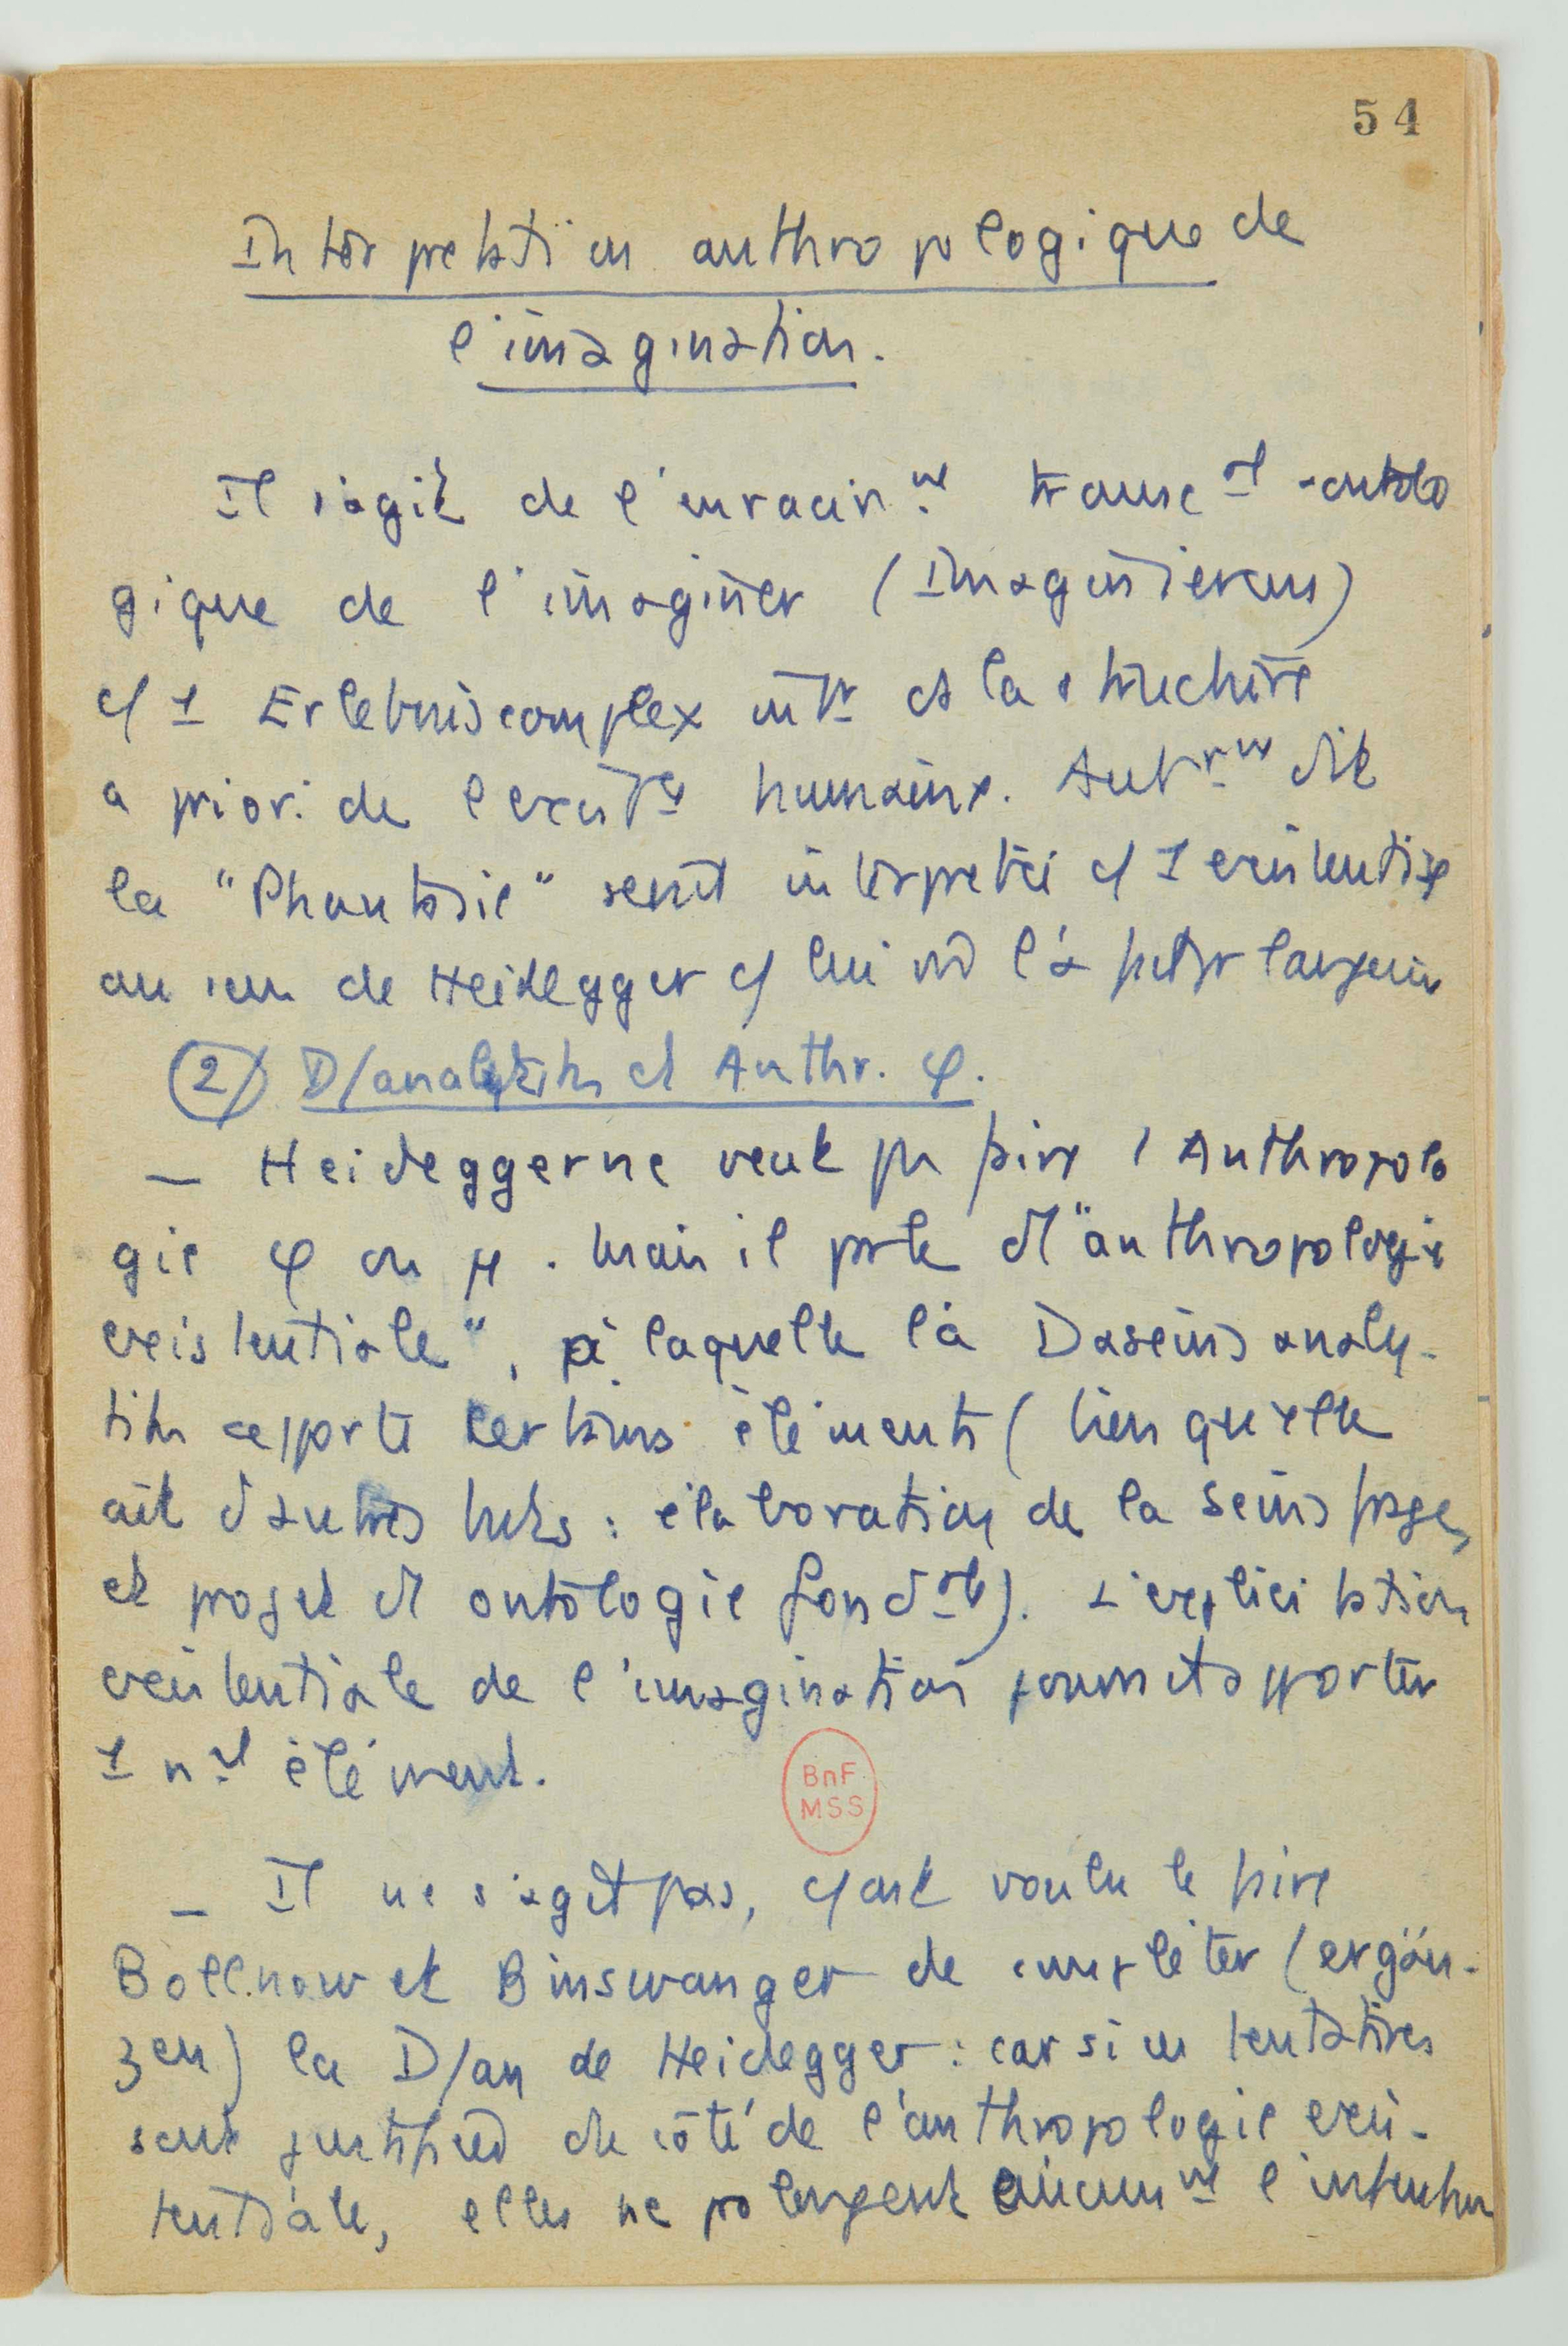 54
Interpretation anthropologique de
l'imagination.
Il s'agit de l'enracin.nt transc al -ontolo
gique de l'imaginer (Imaginieren)
c/ 1 Erlebniscomplex ds la structure
a priori de l'existce humaine. Autrnt dit
la "Phantasie" serait interpretée c/ 1 existential
au sens de Heidegger c/ lui l'a fait pr
② D/analytik et Anthr. φ.
— Heidegger ne veut pas faire 1 Anthropolo
gie φ ou ψ. Mais il parle d'1 "anthropologie
existentiale", à laquelle la Daseinsanaly-
tik apporte certains éléments (bien qu'elle
ait d'autres buts : élaboration de la Seinsfrage,
et projet d'1 ontologie fondale). L'explicitation
existentiale de l'imagination pourrait apporter
1 nvl élément.
BnF
MSS
— Il ne s'agit pas, c/ ont voulu le faire
Bollnow et Binswanger de compléter (ergän-
zen) la D/an de Heidegger : car si ces tentatives
sont justifiées du côté de l'anthropologie exis-
tentiale, elles ne prolongent aucunnt l'intention